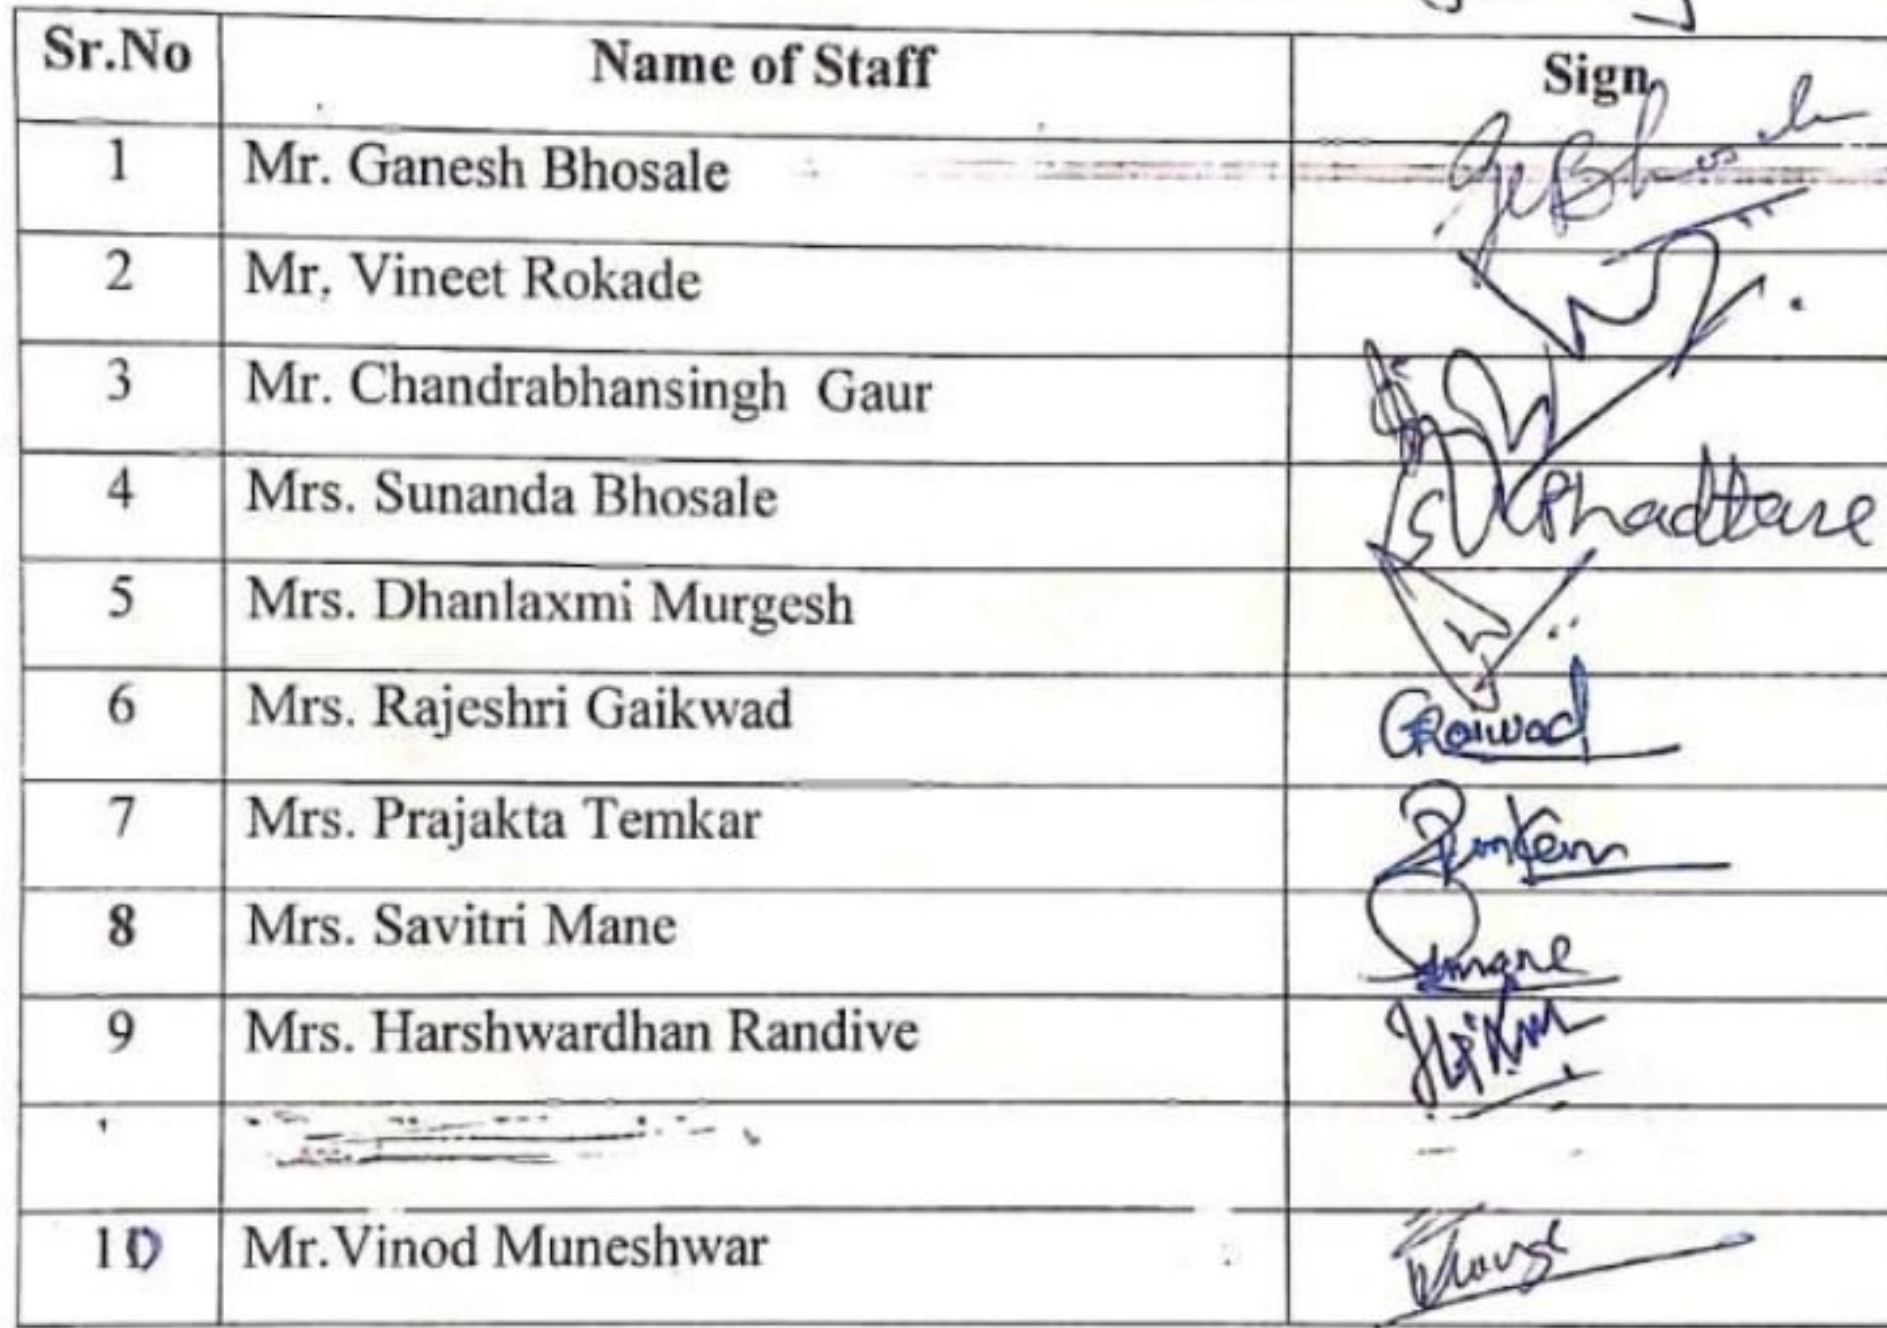 Sr.No Name of Staff Sign
1 Mr. Ganesh Bhosale GBhosale
2 Mr. Vineet Rokade
3 Mr. Chandrabhansingh Gaur
4 Mrs. Sunanda Bhosale Phadtare
5 Mrs. Dhanlaxmi Murgesh
6 Mrs. Rajeshri Gaikwad
7 Mrs. Prajakta Temkar
8 Mrs. Savitri Mane Smane
9 Mrs. Harshwardhan Randive
10 Mr.Vinod Muneshwar